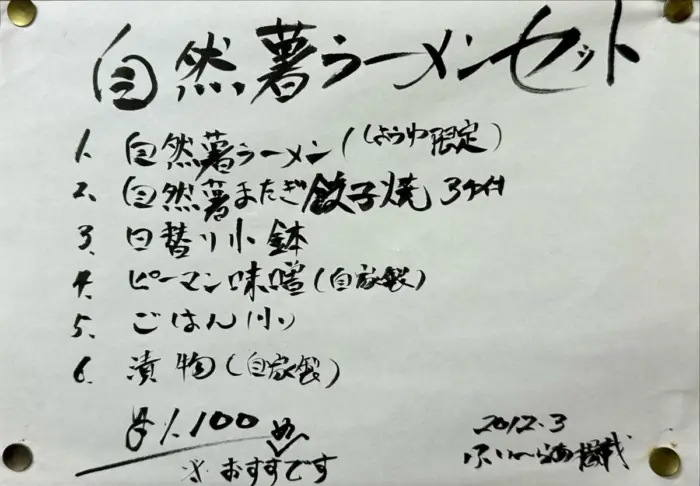 自然薯ラーメンセット
1. 自然薯ラーメン(しょうゆ限定)
2. 自然薯またぎ餃子焼 3ケ付
3. 日替り小鉢
4. ピーマン味噌(自家製)
5. ごはん 小
6. 漬物(自家製)
¥1.100
※おすすめです
2012.3
掲載